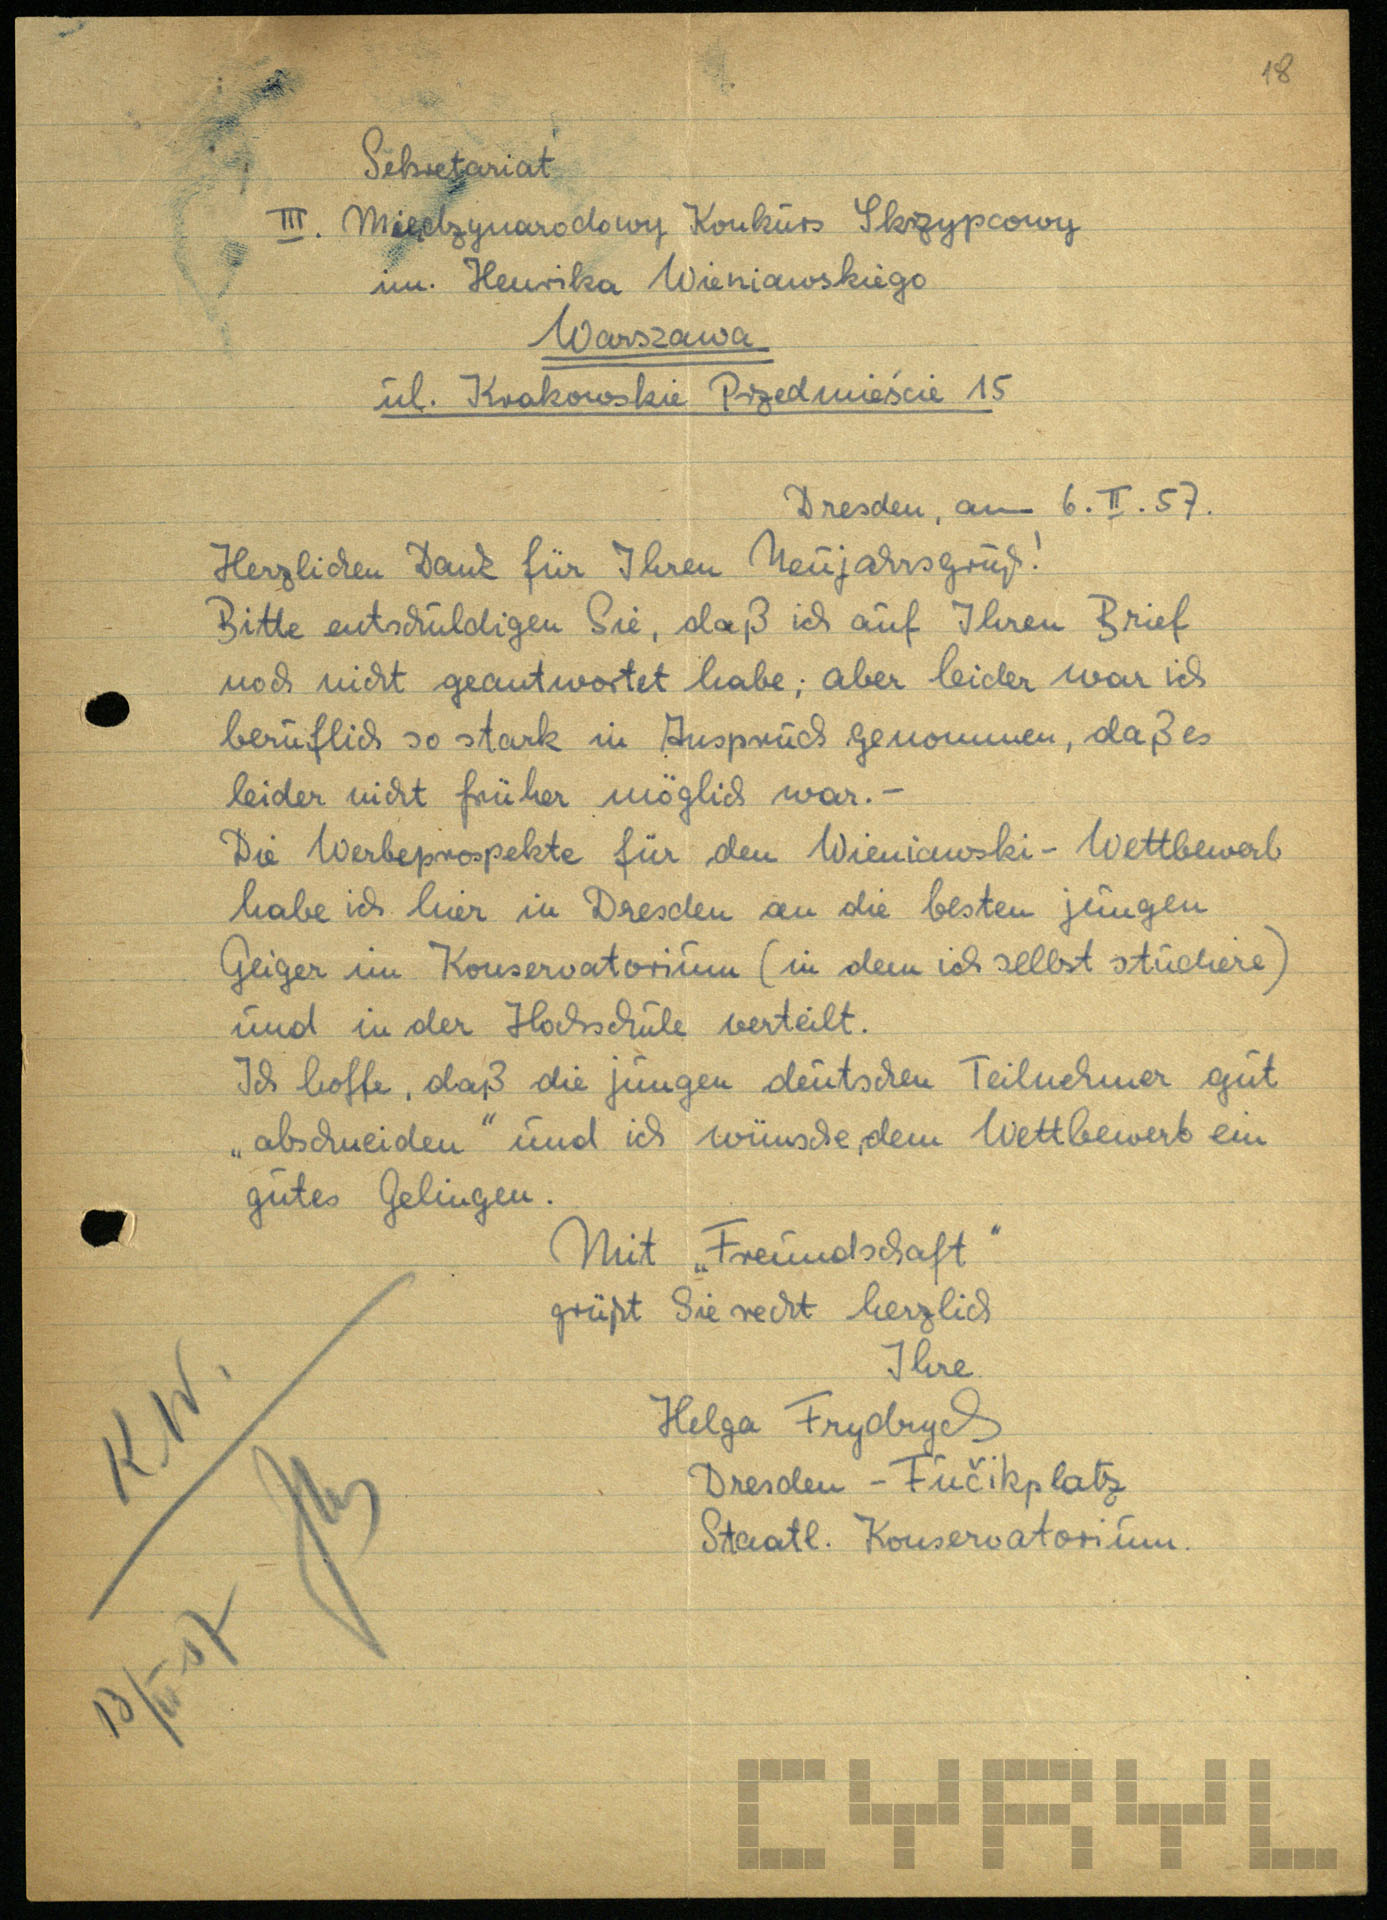 18
Sekretariat
III. Międzynarodowy Konkurs Skrzypcowy
im. Henrika Wieniawskiego
Warszawa
ul. Krakowskie Przedmieście 15
Dresden, am 6.II.57.
Herzlichen Dank für Ihren Neujahrsgruß!
Bitte entschuldigen Sie, daß ich auf Ihren Brief
noch nicht geantwortet habe; aber leider war ich
beruflich so stark in Anspruch genommen, daß es
leider nicht früher möglich war.-
Die Werbeprospekte für den Wieniawski-Wettbewerb
habe ich hier in Dresden an die besten jungen
Geiger im Konservatorium (in dem ich selbst studiere)
und in der Hochschule verteilt.
Ich hoffe, daß die jungen deutschen Teilnehmer gut
„abschneiden" und ich wünsche dem Wettbewerb ein
gutes Gelingen.
Mit „Freundschaft"
grüßt Sie recht herzlich
Ihre
Helga Frydrych
Dresden - Fučikplatz
Staatl. Konservatorium.
K.W.
13/II 57
CYRYL